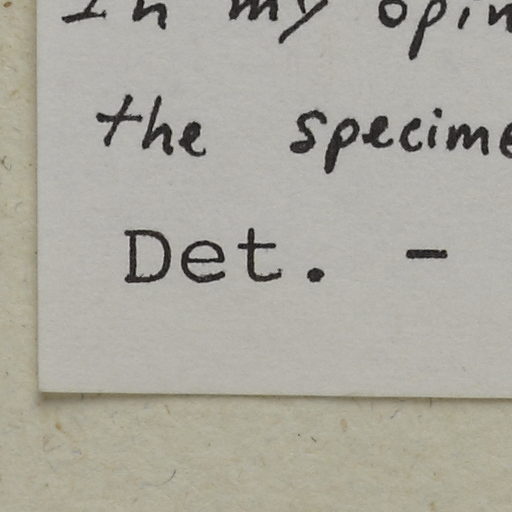 In my opin
the specime
Det. -